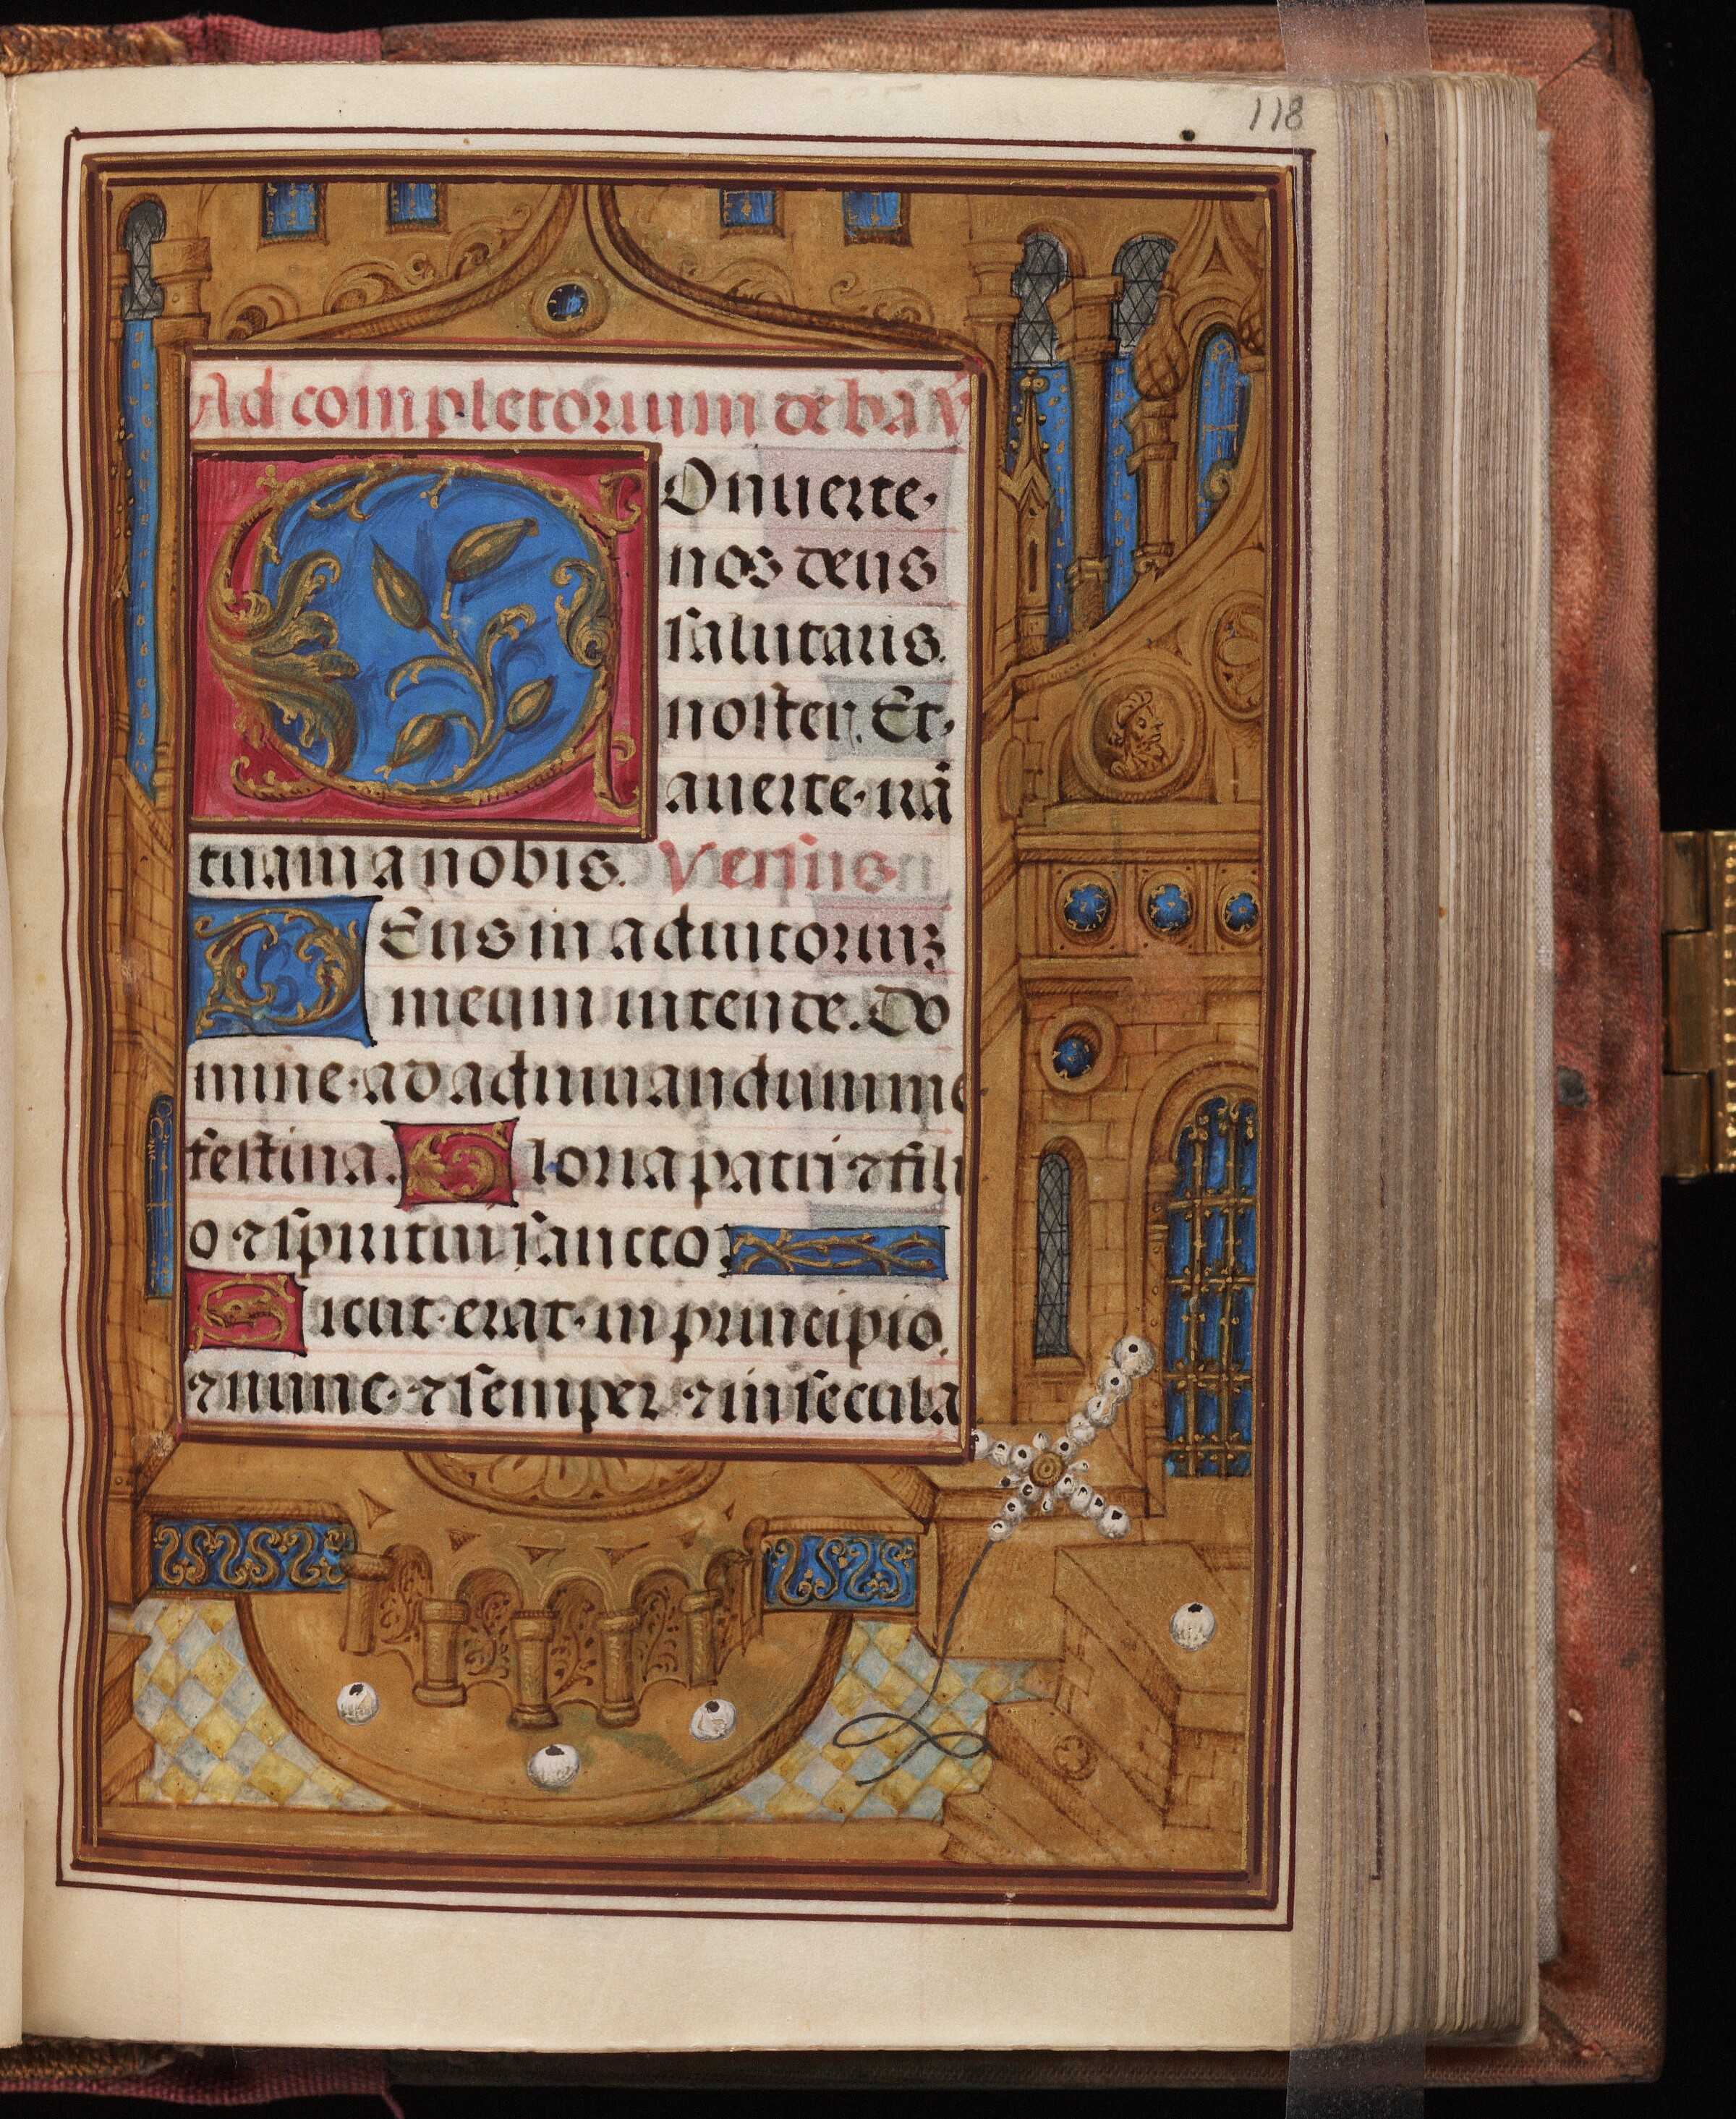 118
Ad completorium de bâ v̄
COnuerte
nos deus
salutaris
noster. Et
auerte irã
tuam a nobis. Versus
DEus in adiutoriuz
meum intende. Do
mine ad adiuuandum me
festina. Gloria patri ⁊ fili
o ⁊ spiritui sancto:
Sicut erat in principio.
⁊ nunc ⁊ semper ⁊ in secula